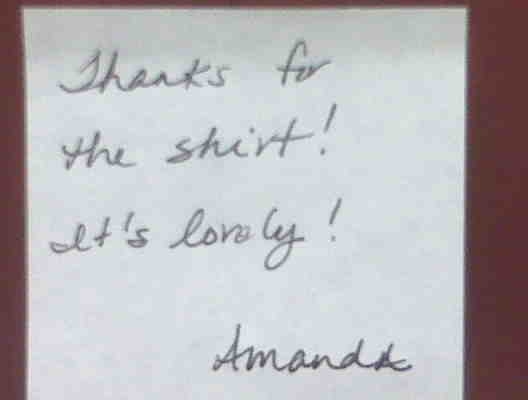 Thanks for
the shirt!
It's lovely!
Amanda